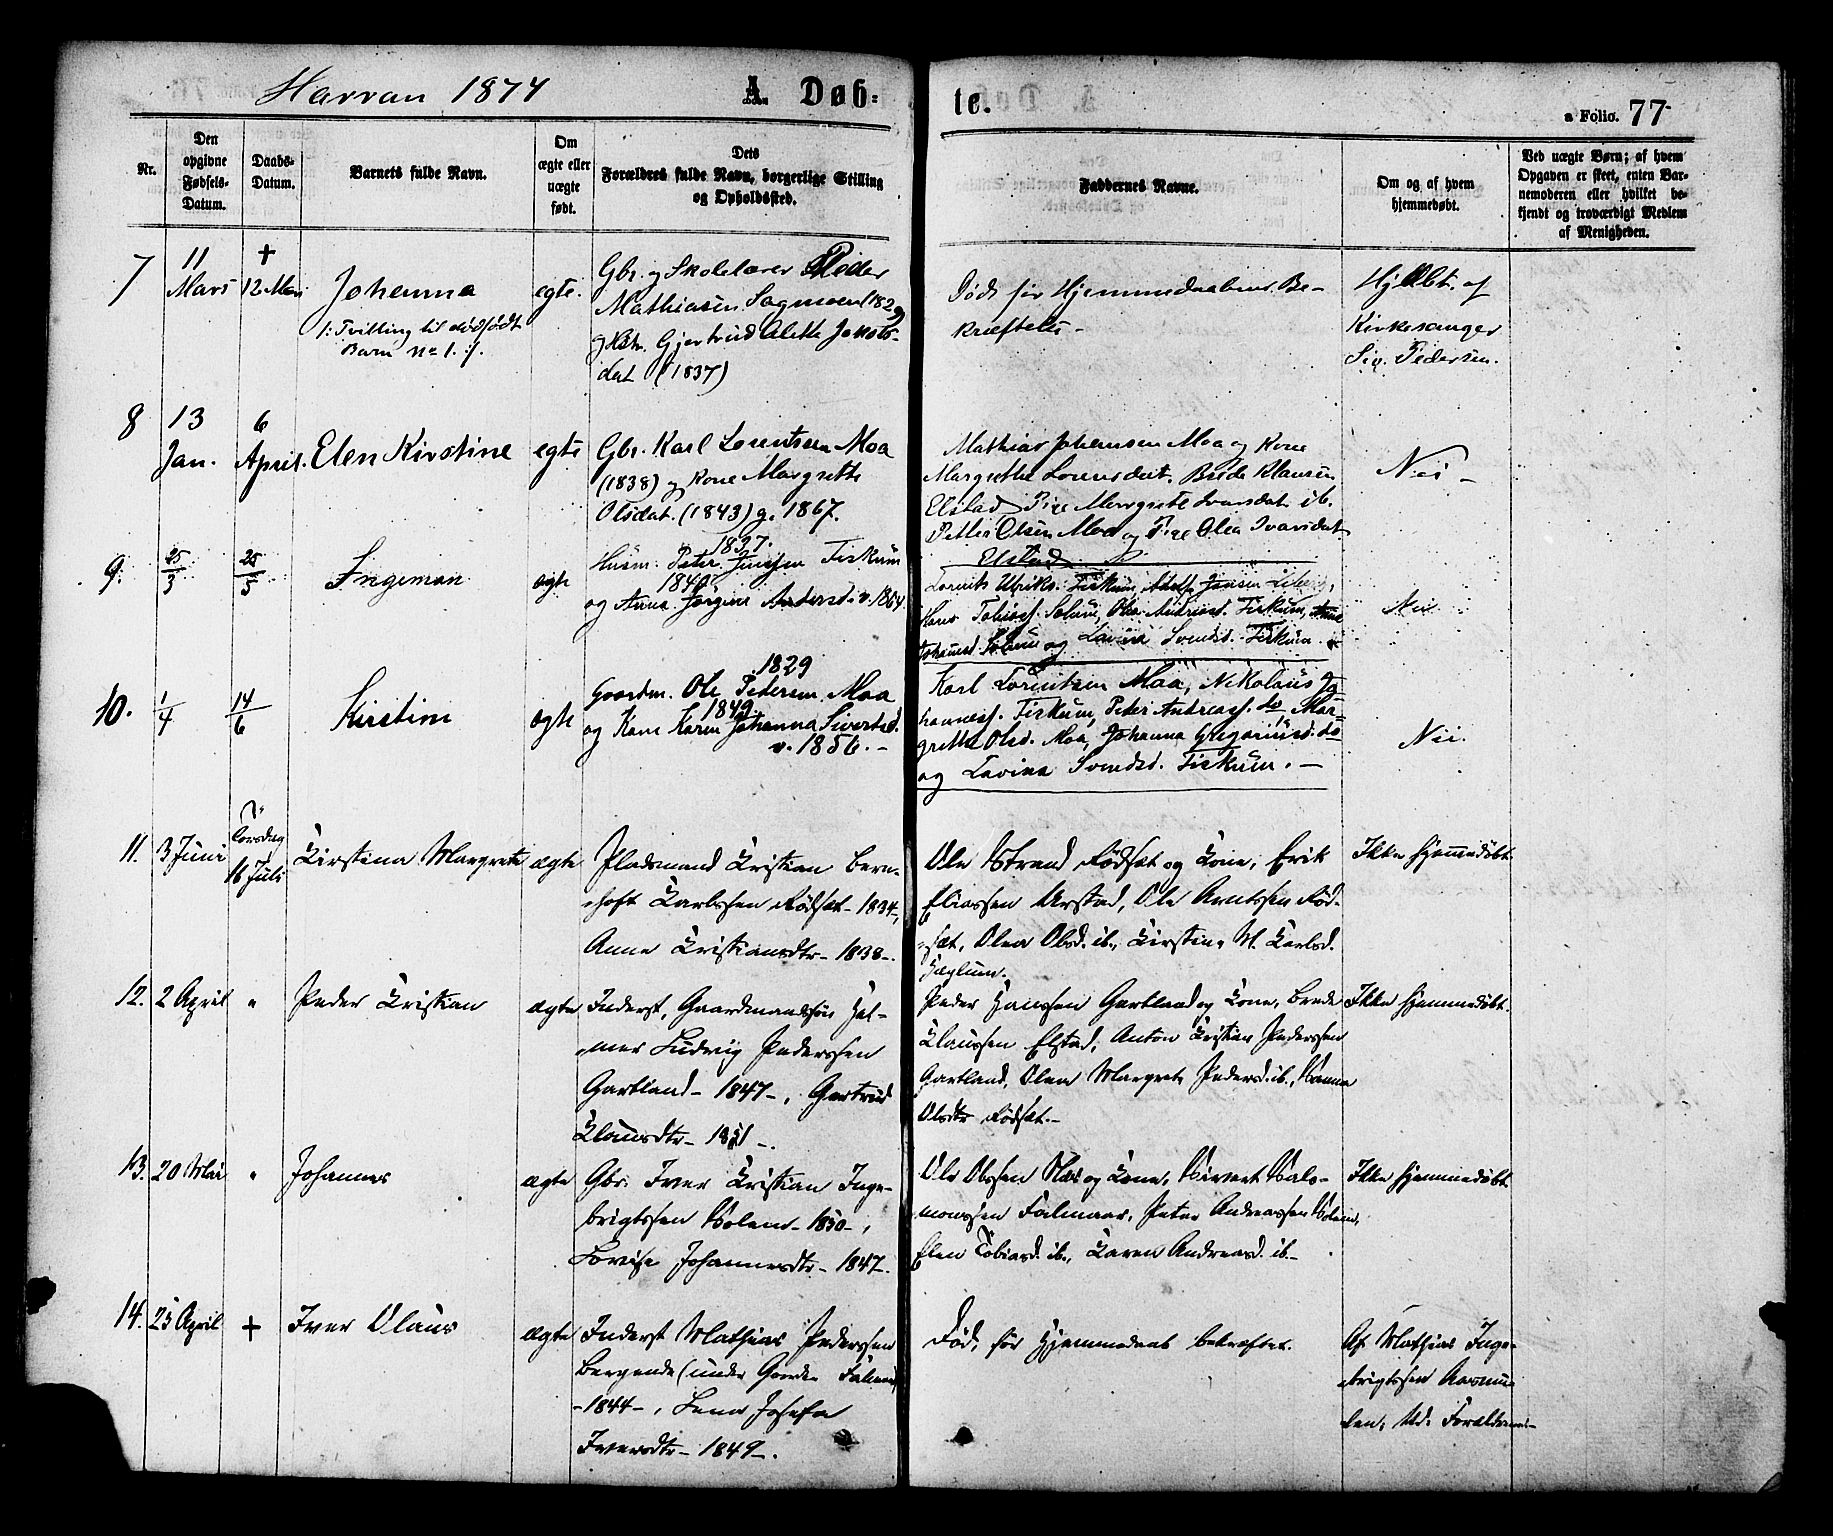 Harran 1874 A. Døb-
te. a Folio. 77
Nr.
Den
opgivne
Fødsels-
Datum.
Daabs-
Datum.
Barnets fulde Navn.
Om
ægte eller
uægte
født.
Dets
Forældres fulde Navn, borgerlige Stilling
og Opholdssted.
Faddernes Navne.
Om og af hvem
hjemmedøbt.
Ved uægte Børn; af hvem
Opgaven er skeet, enten Bar-
nemoderen eller hvilket be-
kjendt og troværdigt Medlem
af Menigheden.
7
11
Mars
+
12 Mars
Johanna
/: Tvilling til dødfødt
Barn No 1. :/
egte.
Gbr. og Skolelærer Peder
Mathiasen Sagmoen (1829)
Gjertrud Aletta Jakobs-
dat (1837)
Død før Hjemmedaabens Be-
kræftelse -
Hj.dbt. af
Kirkesanger
Siv. Pedersen.
8
13
Jan.
6
April.
Elen Kirstine
egte
Gbr. Karl Lorentsen Moa
(1838) og Kone Margrete
Olsdat. (1843) g. 1867.
Mathias Johansen Moa og Kone
Margrethe Lorensdat. Brede Klausen
Elstad Pige Margrete Ivarsdat ib.
Petter Olsen Moa og Pige Olea Ivarsdat
Elstad
Nei -
9.
25/3
25/5
Ingeman
egte
1837.
Husm. Peter Jenssen Fiskum
1840
og Anna Jørgine Andersd. v. 1864.
Lornts Ulriks. Fiskum, Adolf Jensen
Hans Tobiass. Solum, Ole Andreass. Fiskum,
Johannsd. Solum og Lavina Svendsd. Fiskum.
Nei
10.
1/4
14/6
Kirstine
ægte
1829
Gaardm. Ole Pedersen Moa
1849.
og Kone Karen Johanna Sivertsd.
v. 1856. -
Karl Lorentsen Moa, Nikolaus Jo-
hanness. Fiskum, Peter Andreass. do Mar-
grethe Olsd. Moa, Johanna Gregoriusd. do
og Lavina Svendsd. Fiskum. -
Nei.
11.
3 Juni
Torsdag
16 Juli
Kirstina Margrete
ægte
Pladsmand Kristian Bern-
hoft Karlssen Rödset - 1834 -,
Anne Kristiansdtr - 1838 -.
Ole Strand Rödset og Kone, Erik
Eliassen Urstad, Ole Arntssen Röd-
set, Olea Olsd. ib., Kirstine M. Karlsd.
Heglum.
Ikke hjemmedøbt.
12.
2 April
"
Peder Kristian
ægte
Inderst, Gaardmandssøn Hel-
mer Ludvig Pederssen
Gartland - 1847 -, Gertrud
Klausdtr - 1851 -.
Peder Hanssen Gartland og Kone, Brede
Klaussen Elstad, Anton Kristian Pederssen
Gartland, Olea Margrete Pedersd. ib., Hanna
Olsdtr Rödset. -
Ikke hjemmedøbt.
13.
20 Mai
"
Johannes
ægte
Gbr. Iver Kristian Inge-
brigtssen Solem - 1850 -,
Lovise Johannesdtr - 1847 -.
Ole Olssen Næs og Kone, Sivert Salo-
monssen Falmaar, Peter Andreassen Solem,
Elen Tobiasd. ib., Karen Andreasd. ib -
Ikke hjemmedøbt.
14.
25 April
+
Iver Olaus
ægte
Inderst Mathias Pederssen
Bergende (under Gaarden Falmaar)
- 1844 -, Lena Josefa
Iversdtr - 1849 -.
Død, før Hjemmedaab bekræftet.
Af Mathias Inge-
brigtssen Aasmu-
len,